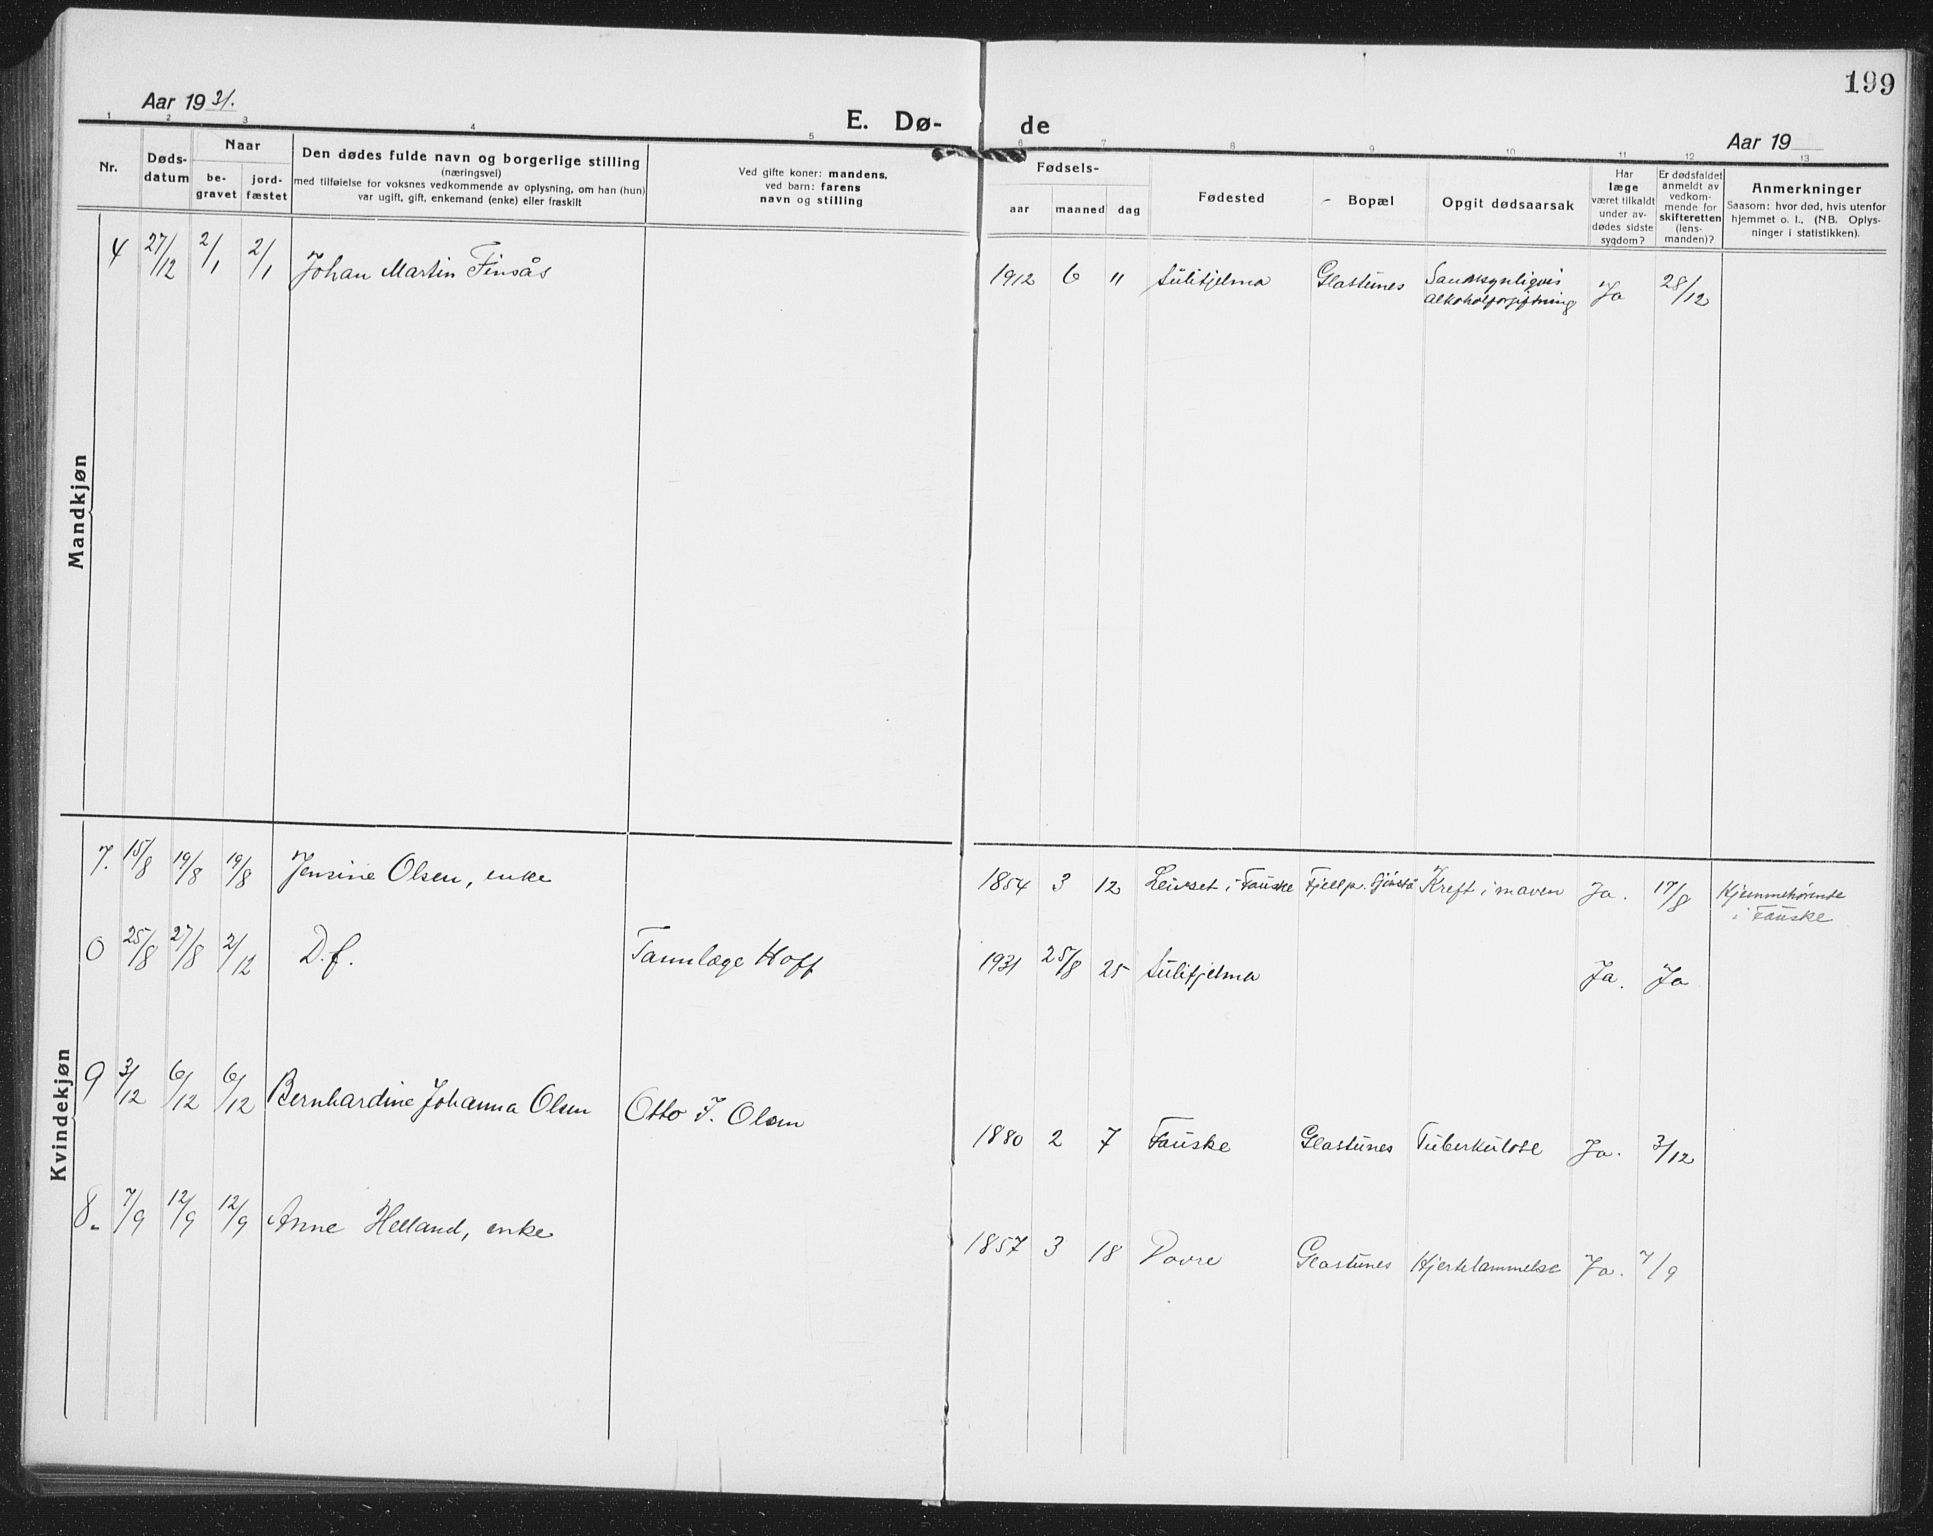 199
Aar 1931.
E. Dø- de
Aar 19
1 2 3 4 5 6 7 8 9 10 11 12 13
Nr.
Døds-
datum
Naar
be-
gravet
jord-
fæstet
Den dødes fulde navn og borgerlige stilling
(næringsvei)
med tilføielse for voksnes vedkommende av oplysning, om han (hun)
var ugift, gift, enkemand (enke) eller fraskilt
Ved gifte koner: mandens,
ved barn: farens
navn og stilling
Fødsels-
aar maaned dag
Fødested
Bopæl
Opgit dødsaarsak
Har
læge
været tilkaldt
under av-
dødes sidste
sygdom?
Er dødsfaldet
anmeldt av
vedkom-
mende for
skifteretten
(lens-
manden)?
Anmerkninger
Saasom: hvor død, hvis utenfor
hjemmet o. l., (NB. Oplys-
ninger i statistikken).
Mandkjøn
4 27/12 2/1 2/1 Johan Martin Finsås 1912 6 11 Sulitjelma Glastunes Sandsynligvis
alkoholforgiftning Ja 28/12
Kvindekjøn
7. 15/8 19/8 19/8 Jensine Olsen, enke 1854 3 12 Leivset i Fauske Fjellp. Kreft i maven Ja. 17/8 Hjemmehørende
i Fauske
0 25/8 27/8 2/12 D.f. Tannlæge Hoff 1931 25/8 25 Sulitjelma Ja. Ja
9 3/12 6/12 6/12 Bernhardine Johanna Olsen Otto J. Olsen 1880 2 7 Fauske Glastunes Tuberkulose Ja. 3/12
8. 7/9 12/9 12/9 Anne Helland, enke 1857 3 18 Dovre Glastunes Hjertelammelse Ja. 7/9